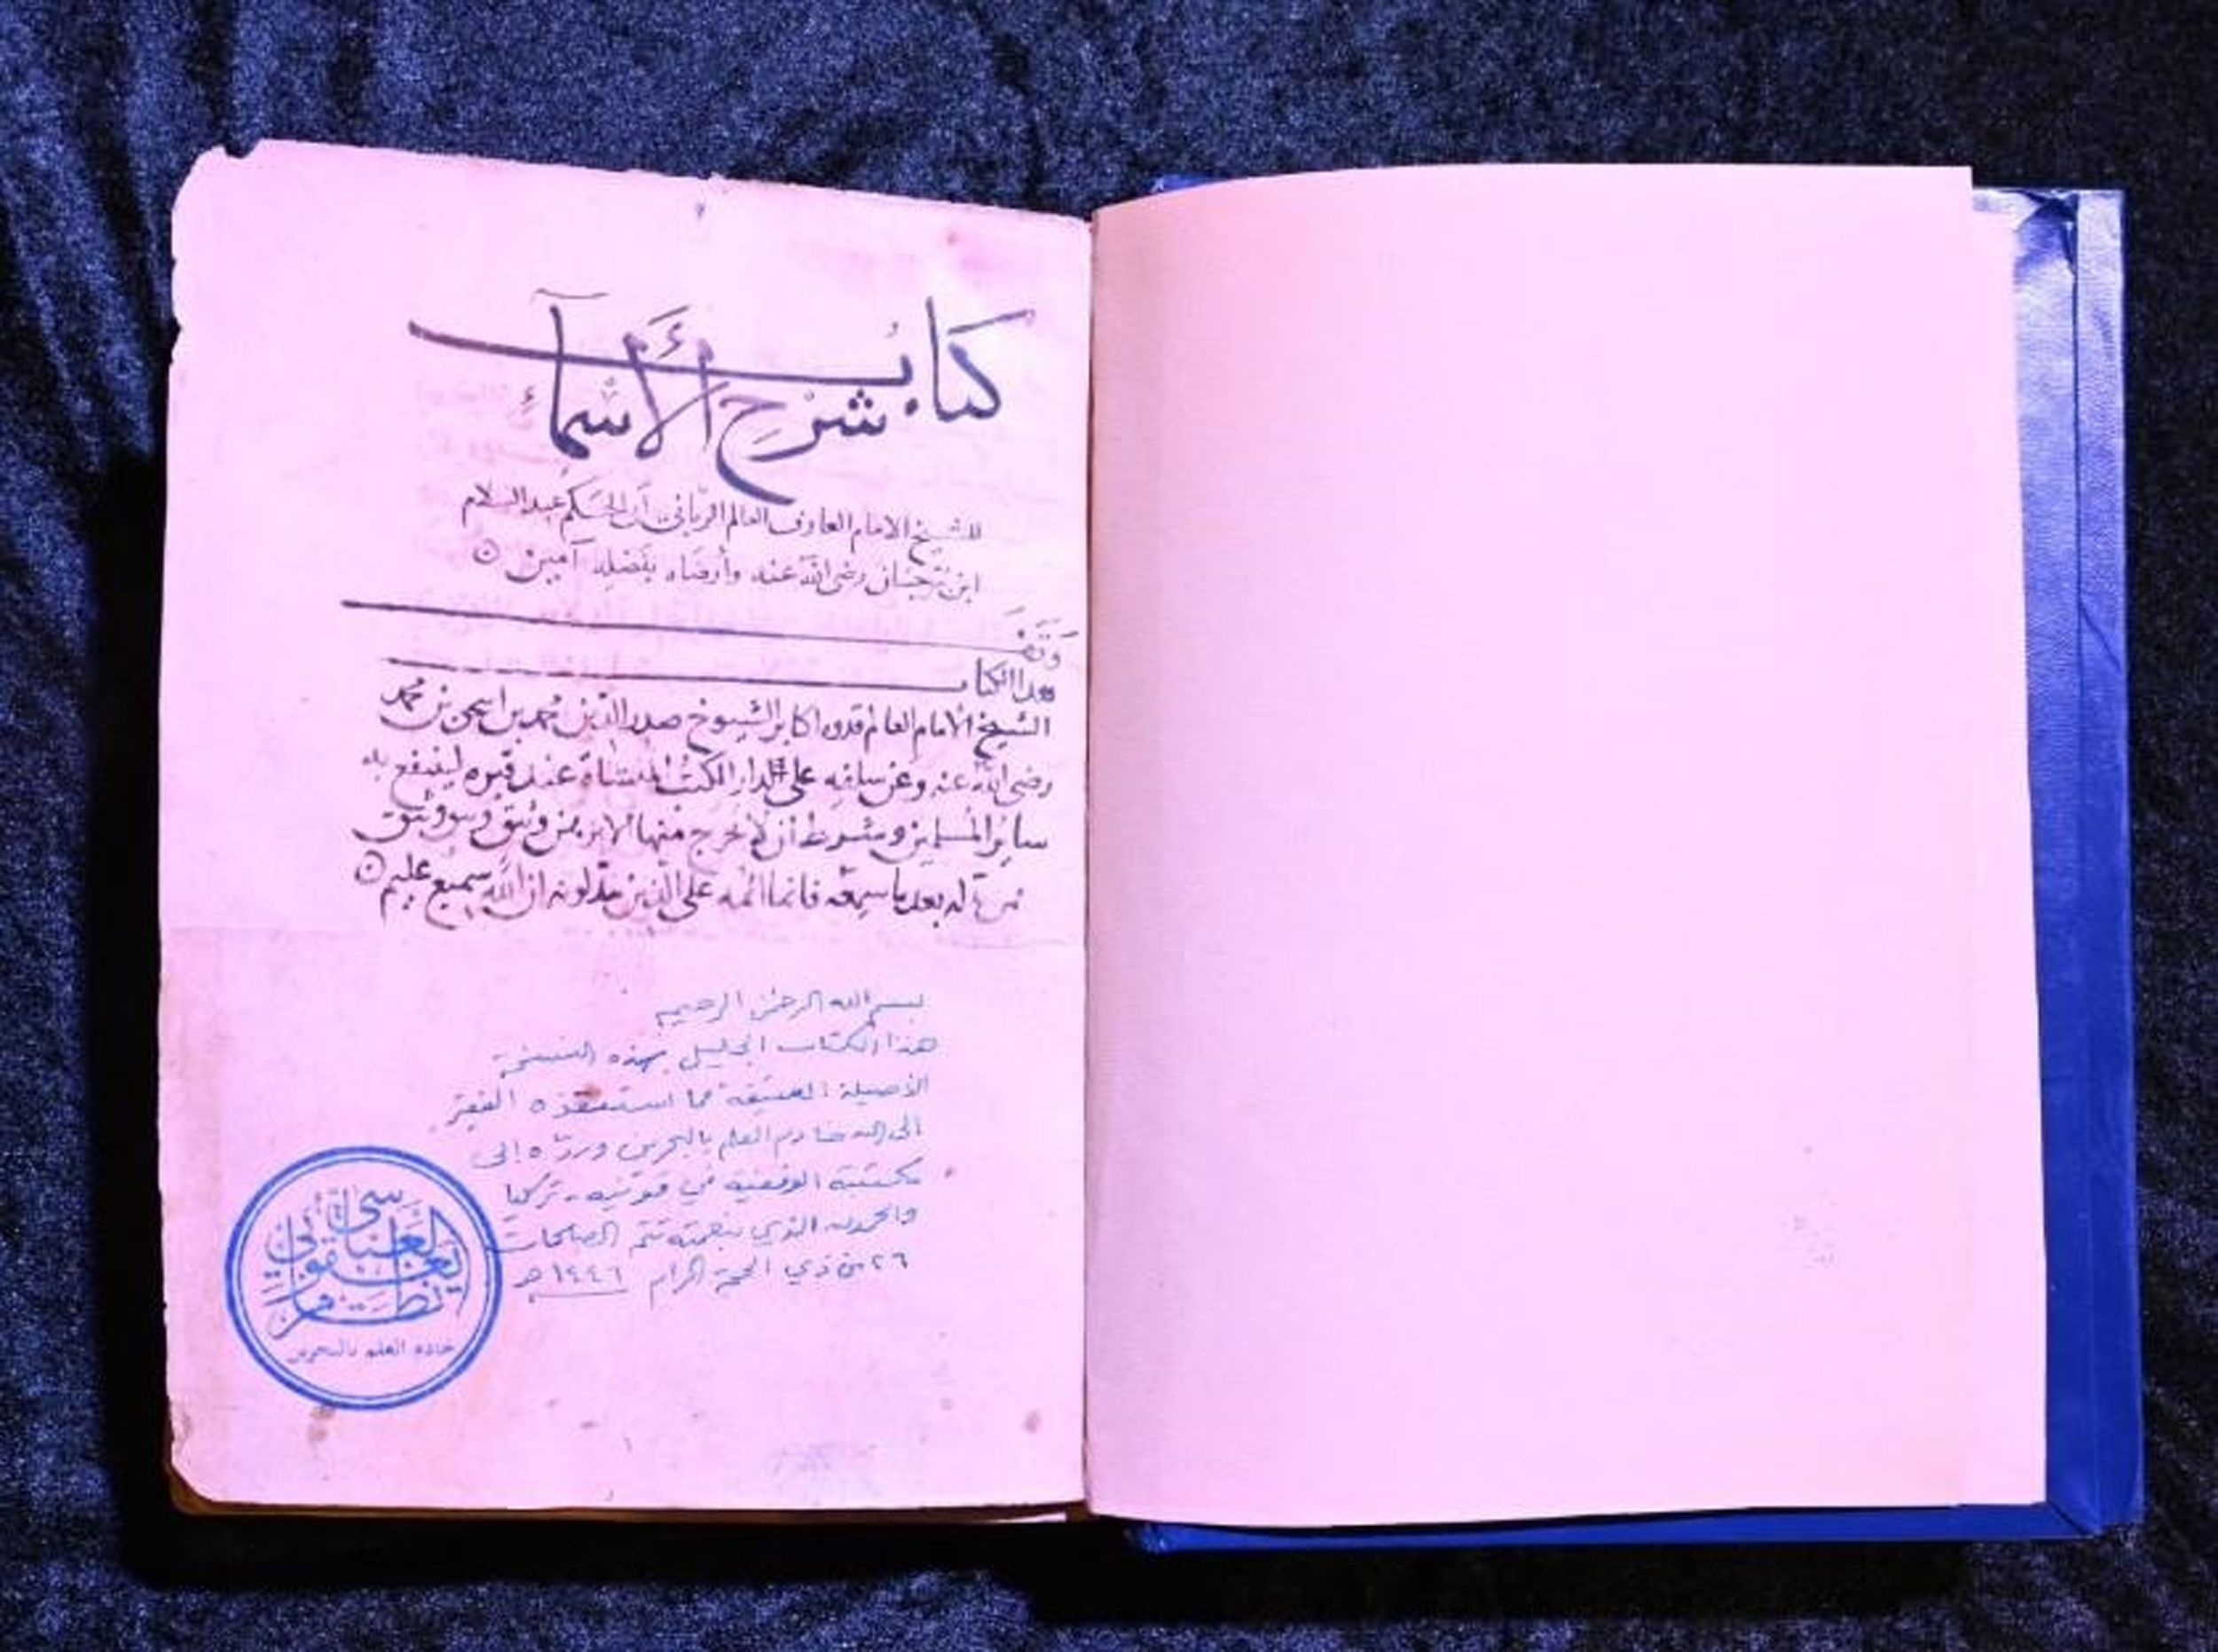 كتاب
شرح الأسماء
للشيخ الامام العارف العالم الرباني أبي الحكم عبد السلام
ابن برجان رضى الله عنه وأرضاه بفضله آمين
وقف
هذا الكتاب
الشيخ الامام العالم قدوة اكابر الشيوخ صدر الدين محمد بن اسحق بن محمد
رضى الله عنه وعن سلفه على دار الكتب المنشاة عند قبره لينتفع به
ساير المسلمين وشرط ان لا تخرج منها الا برهن وثيق
بعد ما سمعه فانما اثمه على الذين يبدلونه ان الله سميع عليم
بسم الله الرحمن الرحيم
هذا الكتاب الجليل بهذه النسخة
الأصيلة العتيقة مما استنقذه الفقير
إلى الله خادم العلم بالبحرين وردّه إلى
مكتبته الوقفية في قونيه - تركيا
والحمد لله الذي بنعمته تتم الصالحات
٢٦ من ذي الحجة الحرام ١٤٤٦ هـ
نظام يعقوبي العباسي
خادم العلم بالبحرين